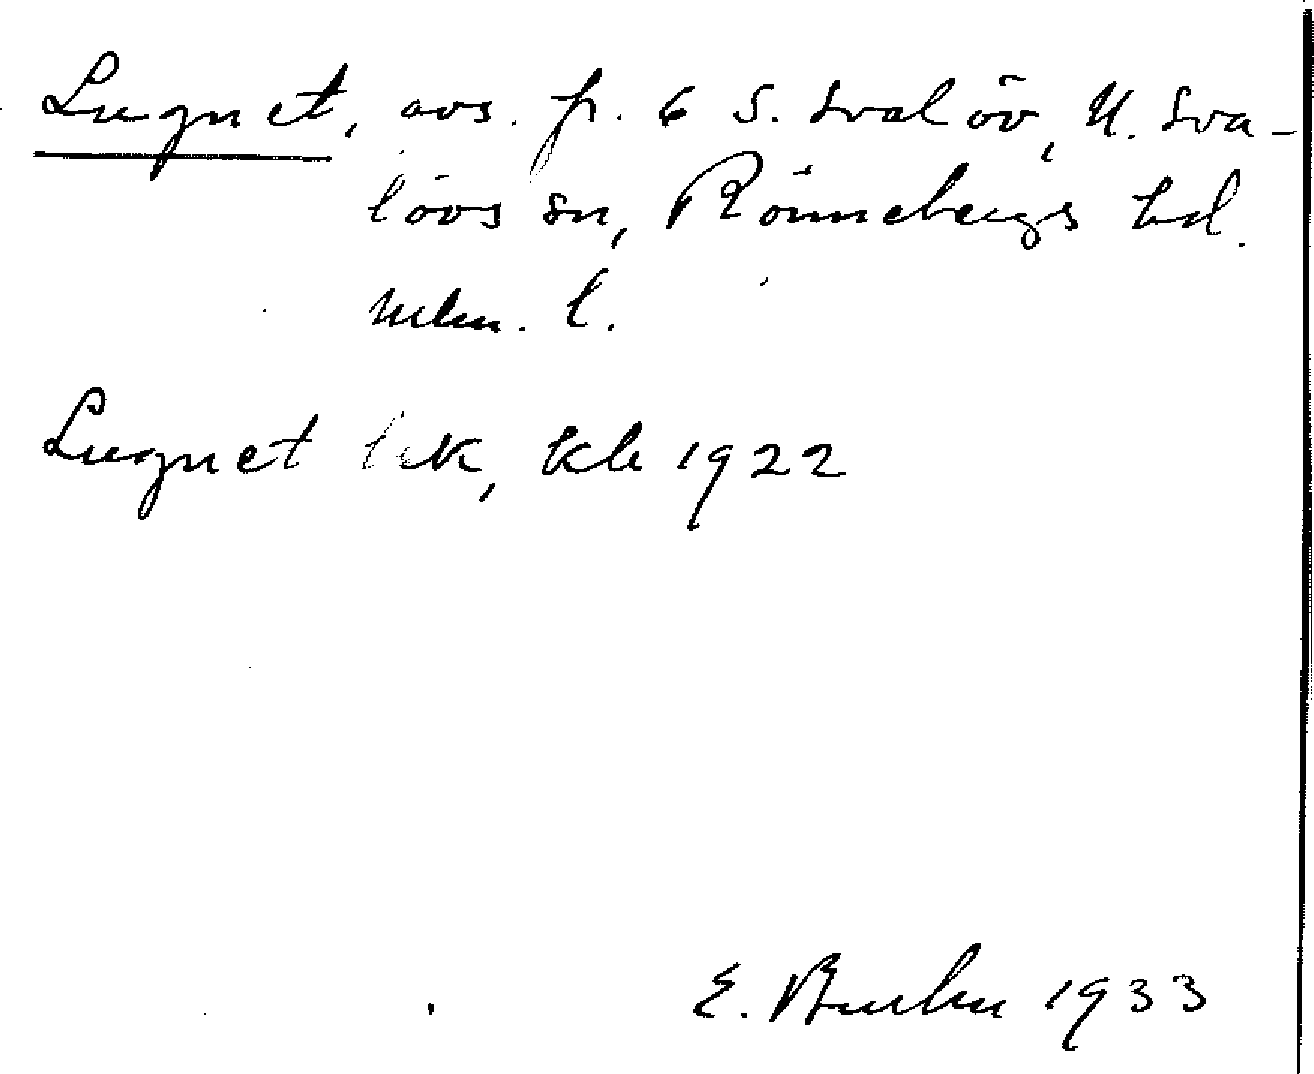 Lugnet, avs. fr. 6 S. Svalöv, N. Sva-
lövs sn, Rönnebergs hd.
Mlm. l.
Lugnet tek, kb 1922
E. Bruhn 1933